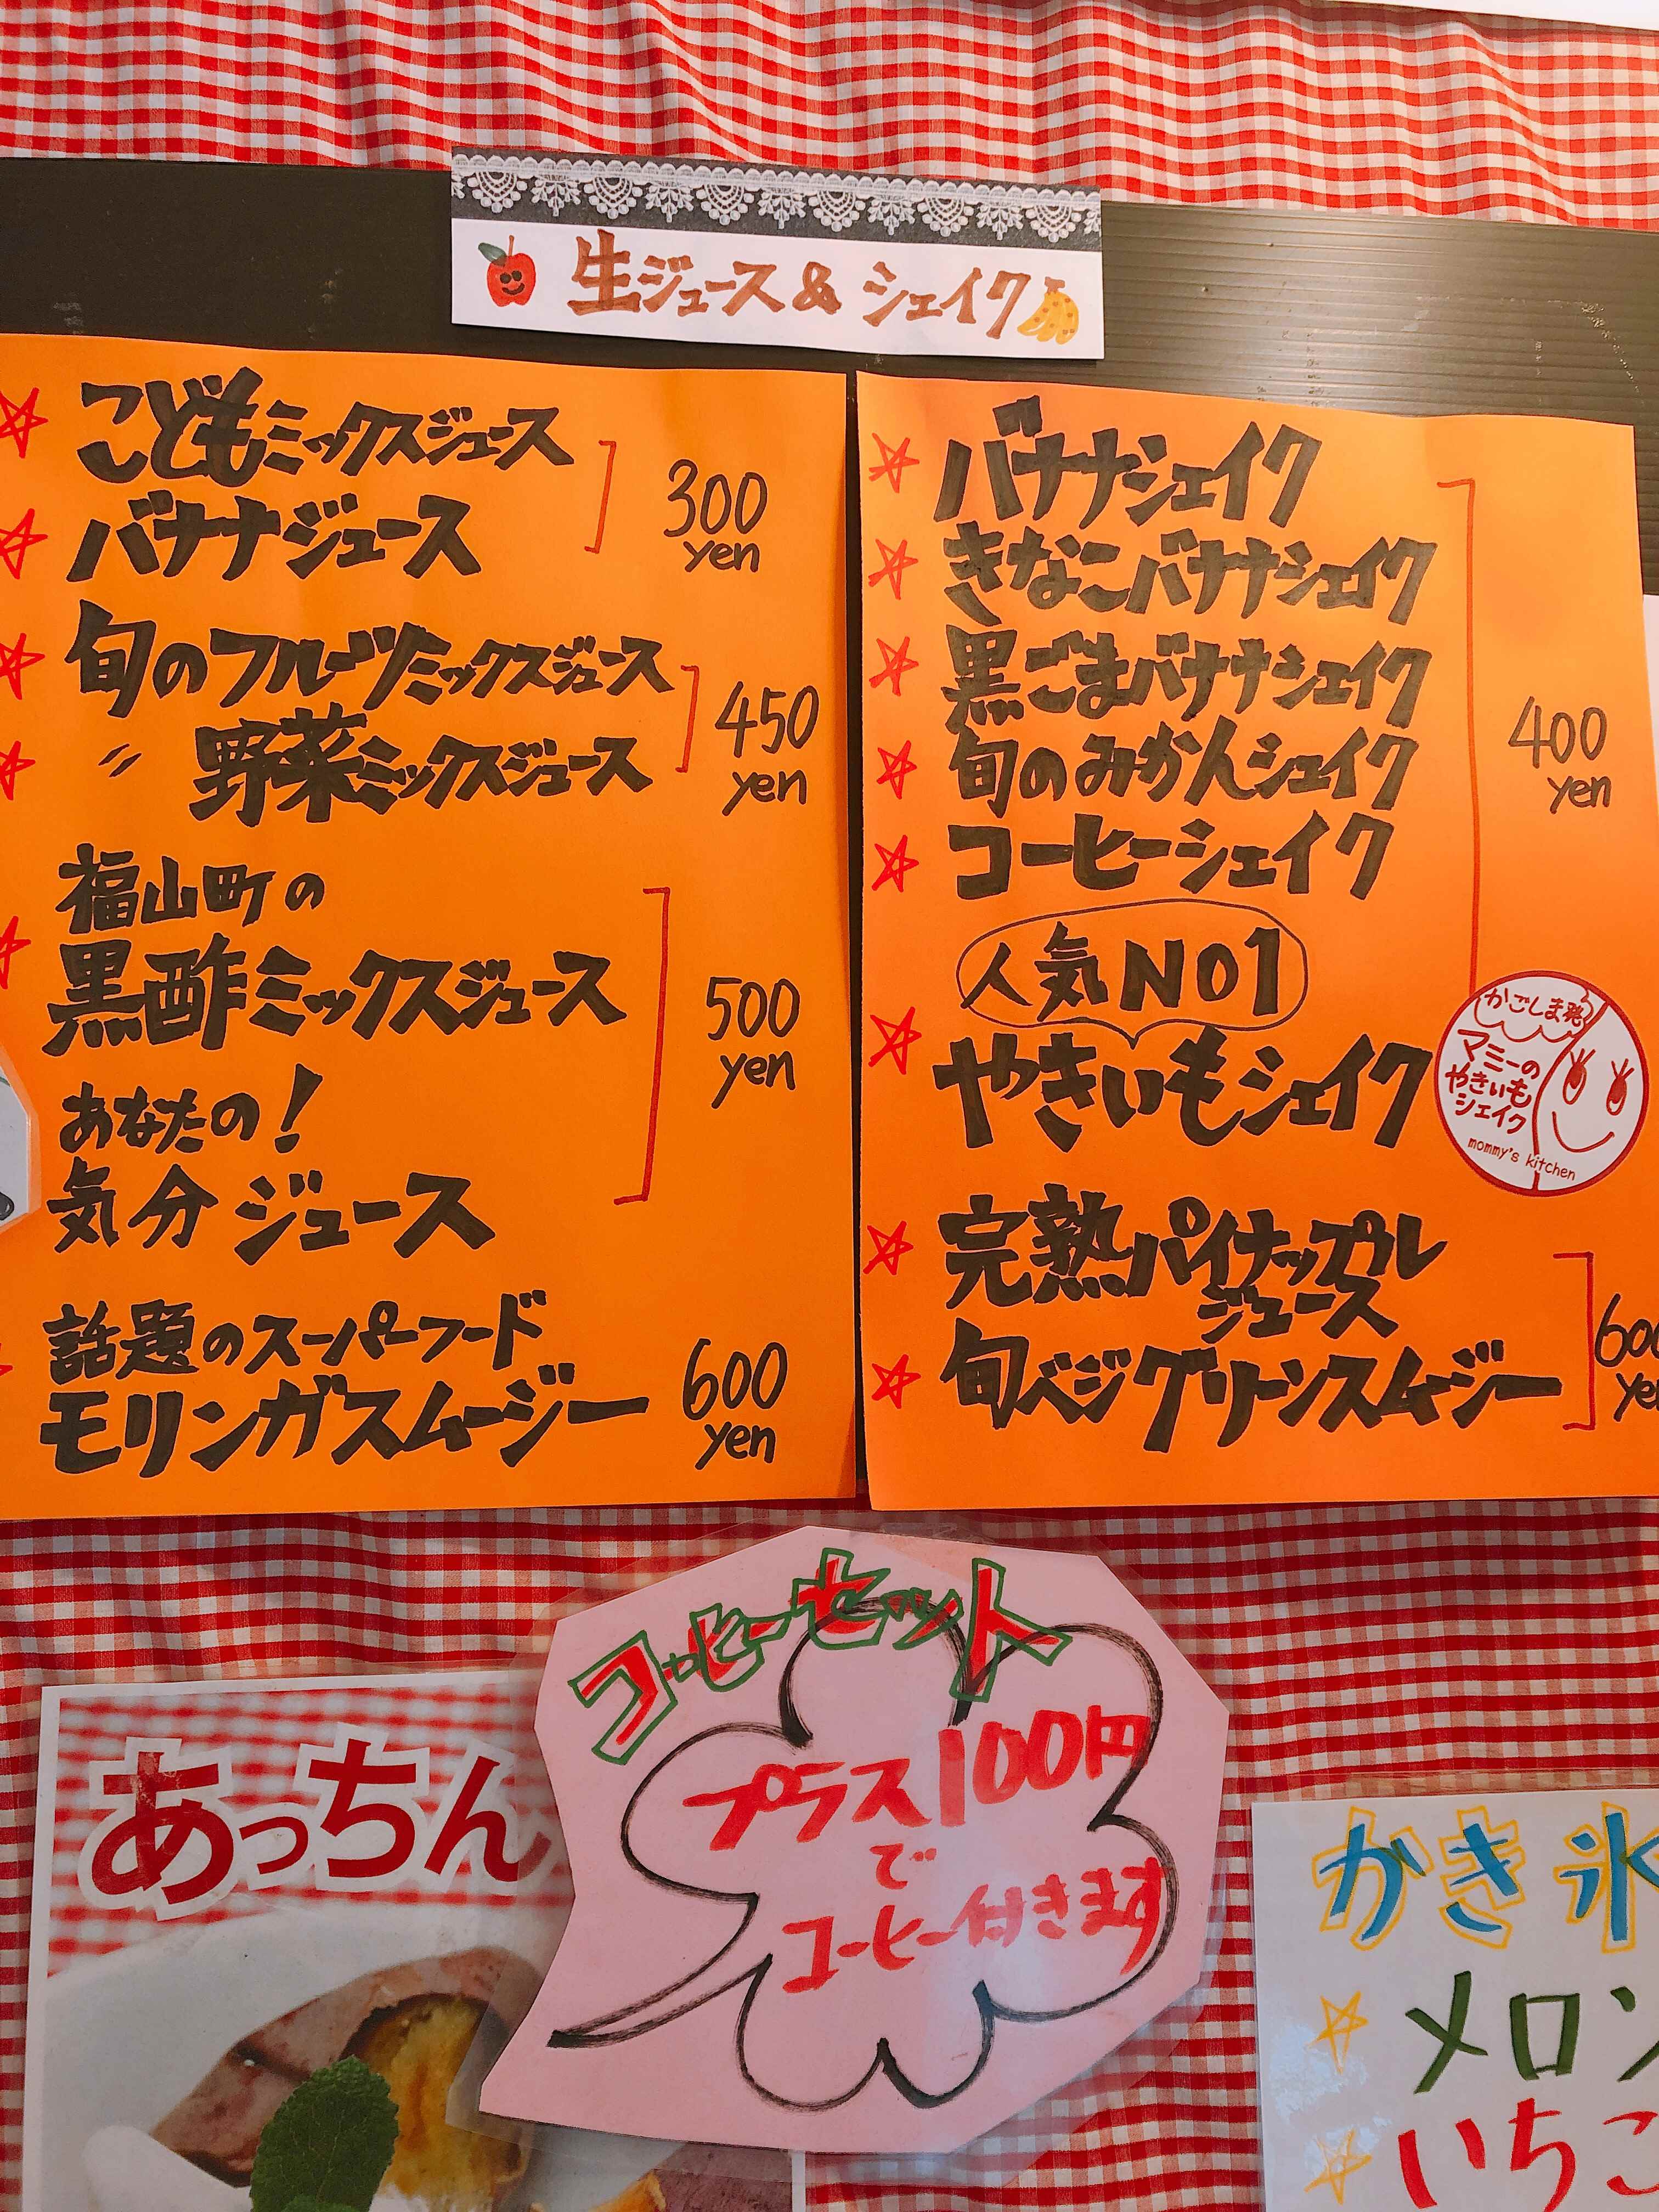 生ジュース & シェイク
こどもミックスジュース
バナナジュース
300
yen
旬のフルーツミックスジュース
〃 野菜ミックスジュース
450
yen
福山町の
黒酢ミックスジュース
あなたの!
気分ジュース
500
yen
話題のスーパーフード
モリンガスムージー
600
yen
バナナシェイク
きなこバナナシェイク
黒ごまバナナシェイク
旬のみかんシェイク
コーヒーシェイク
人気NO1
やきいもシェイク
400
yen
かごしま発
マミーの
やきいも
シェイク
mommy's kitchen
完熟パイナップル
ジュース
旬ベジグリーンスムージー
600
yen
コーヒーセット
プラス100円
で
コーヒー付きます
あっちん
かき氷
メロン
いちご